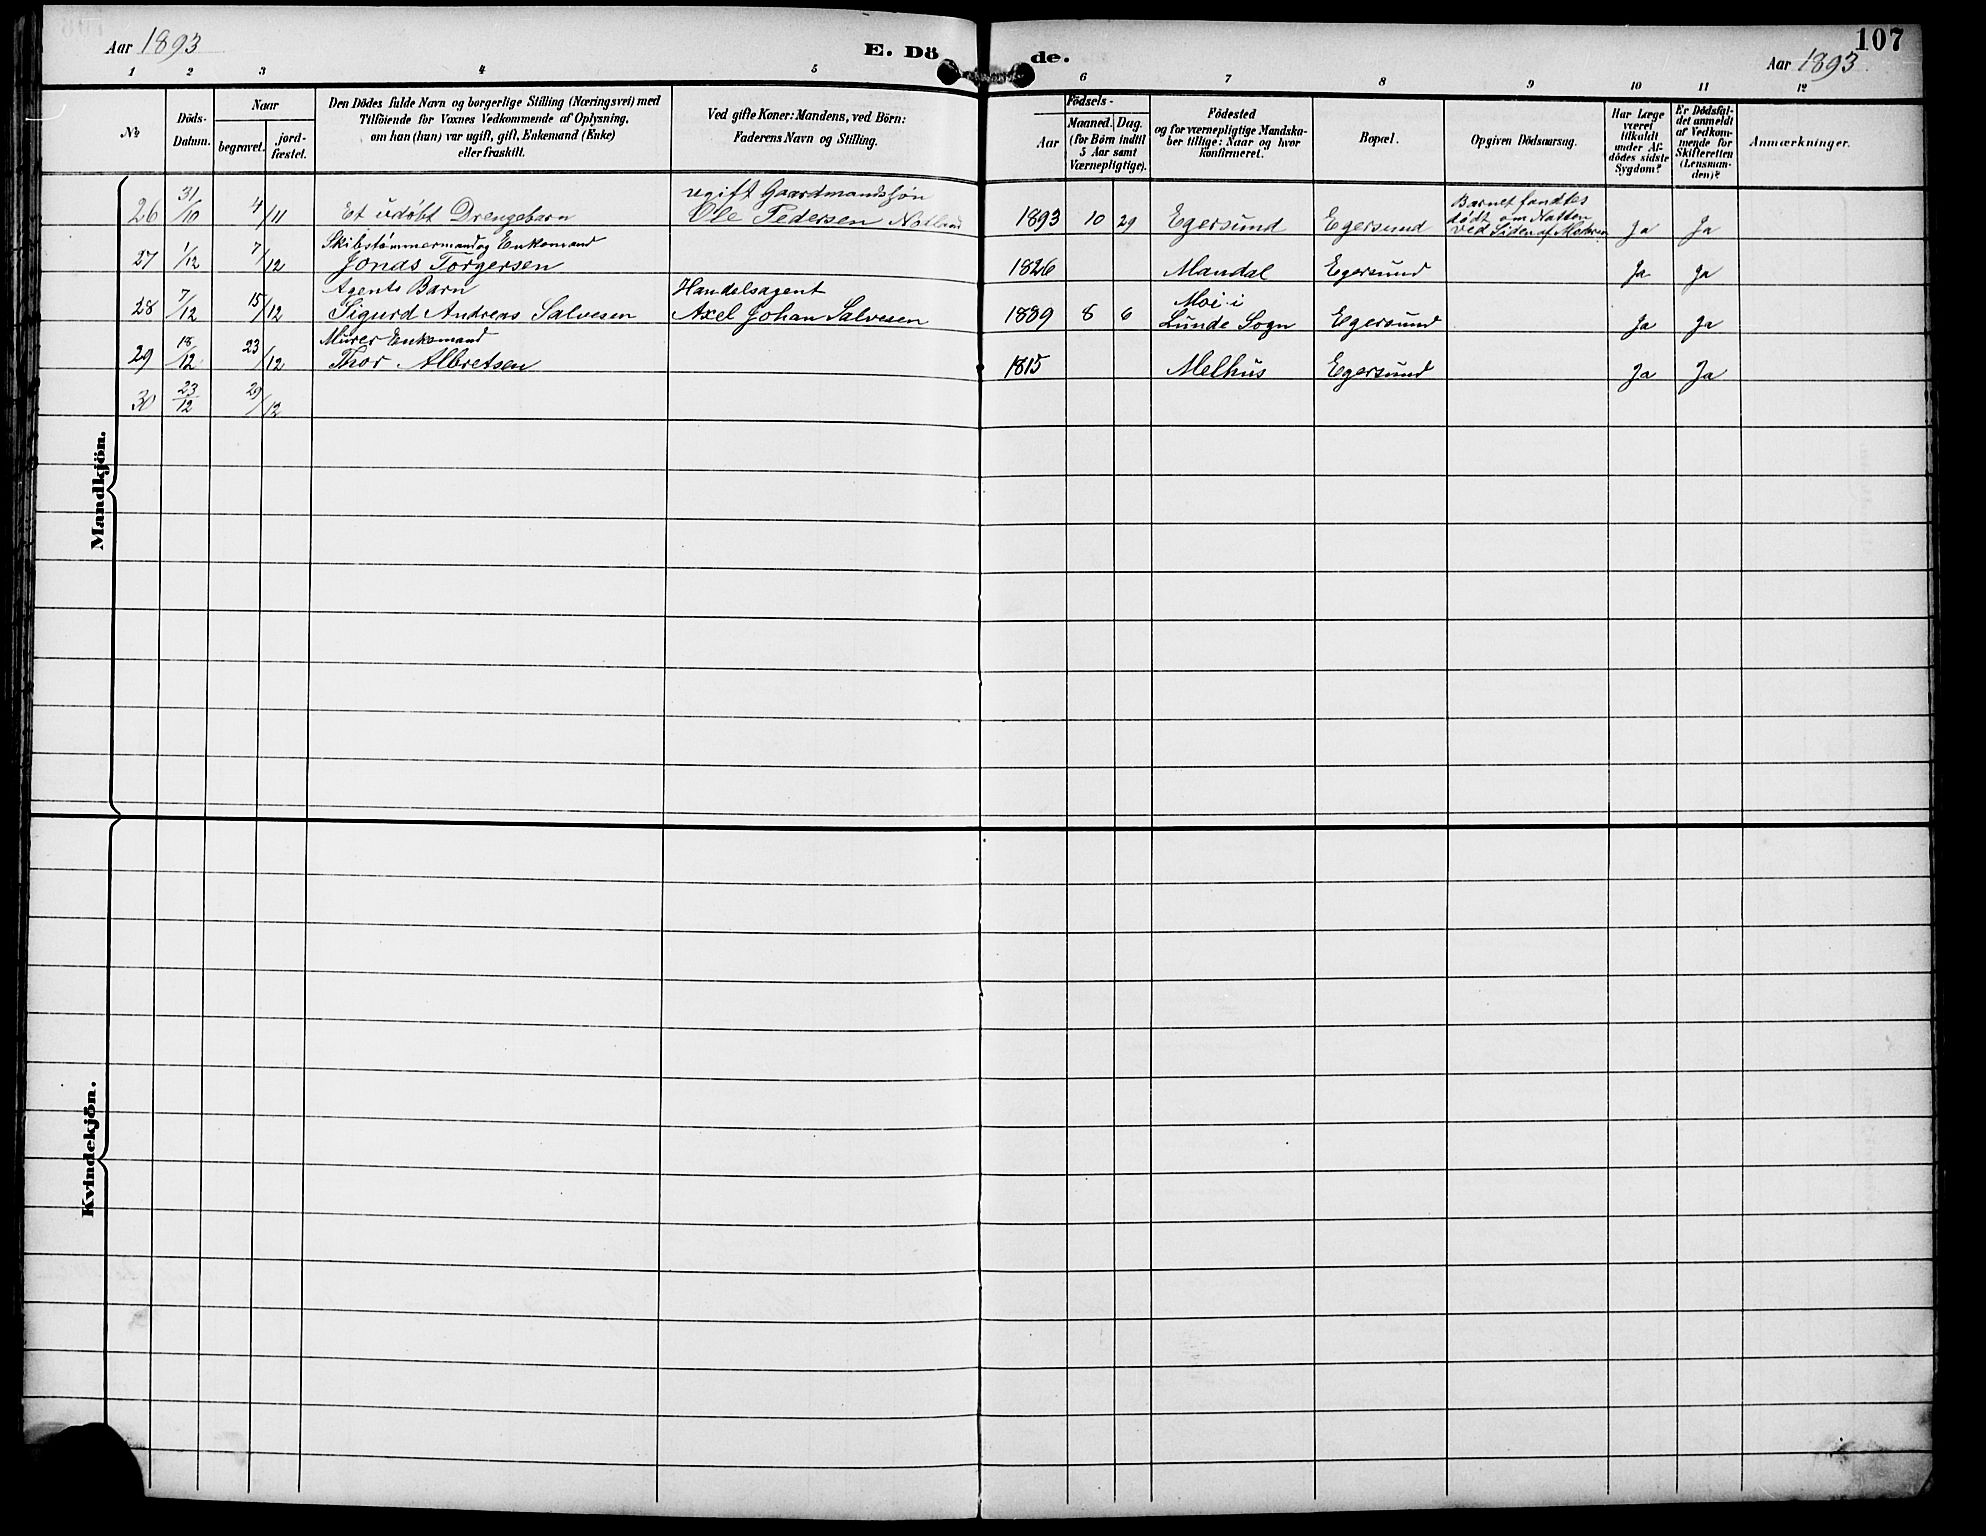 107
Aar 1893
E. Dö de.
Aar 1893.
1 2 3 4 5 6 7 8 9 10 11 12
No
Döds-
Datum.
Naar
begravet.
jord-
fæstet.
Den Dödes fulde Navn og borgerlige Stilling (Næringsvei) med
Tilföiende for Voxnes Vedkommende af Oplysning,
om han (hun) var ugift, gift, Enkemand (Enke)
eller fraskilt.
Ved gifte Koner: Mandens, ved Börn:
Faderens Navn og Stilling.
Födsels-
Aar
Maaned.
Dag.
(for Börn indtil
5 Aar samt
Værnepligtige).
Födested
og for værnepligtige Mandska-
ber tillige: Naar og hvor
konfirmeret.
Bopæl.
Opgiven Dödsaarsag.
Har Læge
været
tilkaldt
under Af-
dödes sidste
Sygdom?
Er Dödsfal-
det anmeldt
af Vedkom-
mende for
Skifteretten
(Lensman-
den)?
Anmærkninger.
Mandkjön.
26 31/10 4/11 Et udøbt Drengebarn
ugift Gaardmandssøn
Ole Pedersen Notland
1893 10 29 Egersund Egersund
Barnet fandtes
dødt om Natten
ved Siden af Moderen
Ja Ja
27 1/12 7/12
Skibstømmermand og Enkemand
Jonas Torgersen
1826 Mandal Egersund Ja Ja
28 7/12 15/12
Agents Barn
Sigurd Andreas Salvesen
Handelsagent
Axel Johan Salvesen
1889 8 6
Moi i
Lunde Sogn
Egersund Ja Ja
29 18/12 23/12
Murer Enkemand
Thor Albretsen
1815 Melhus Egersund Ja Ja
30 23/12 29/12
Kvindekjön.